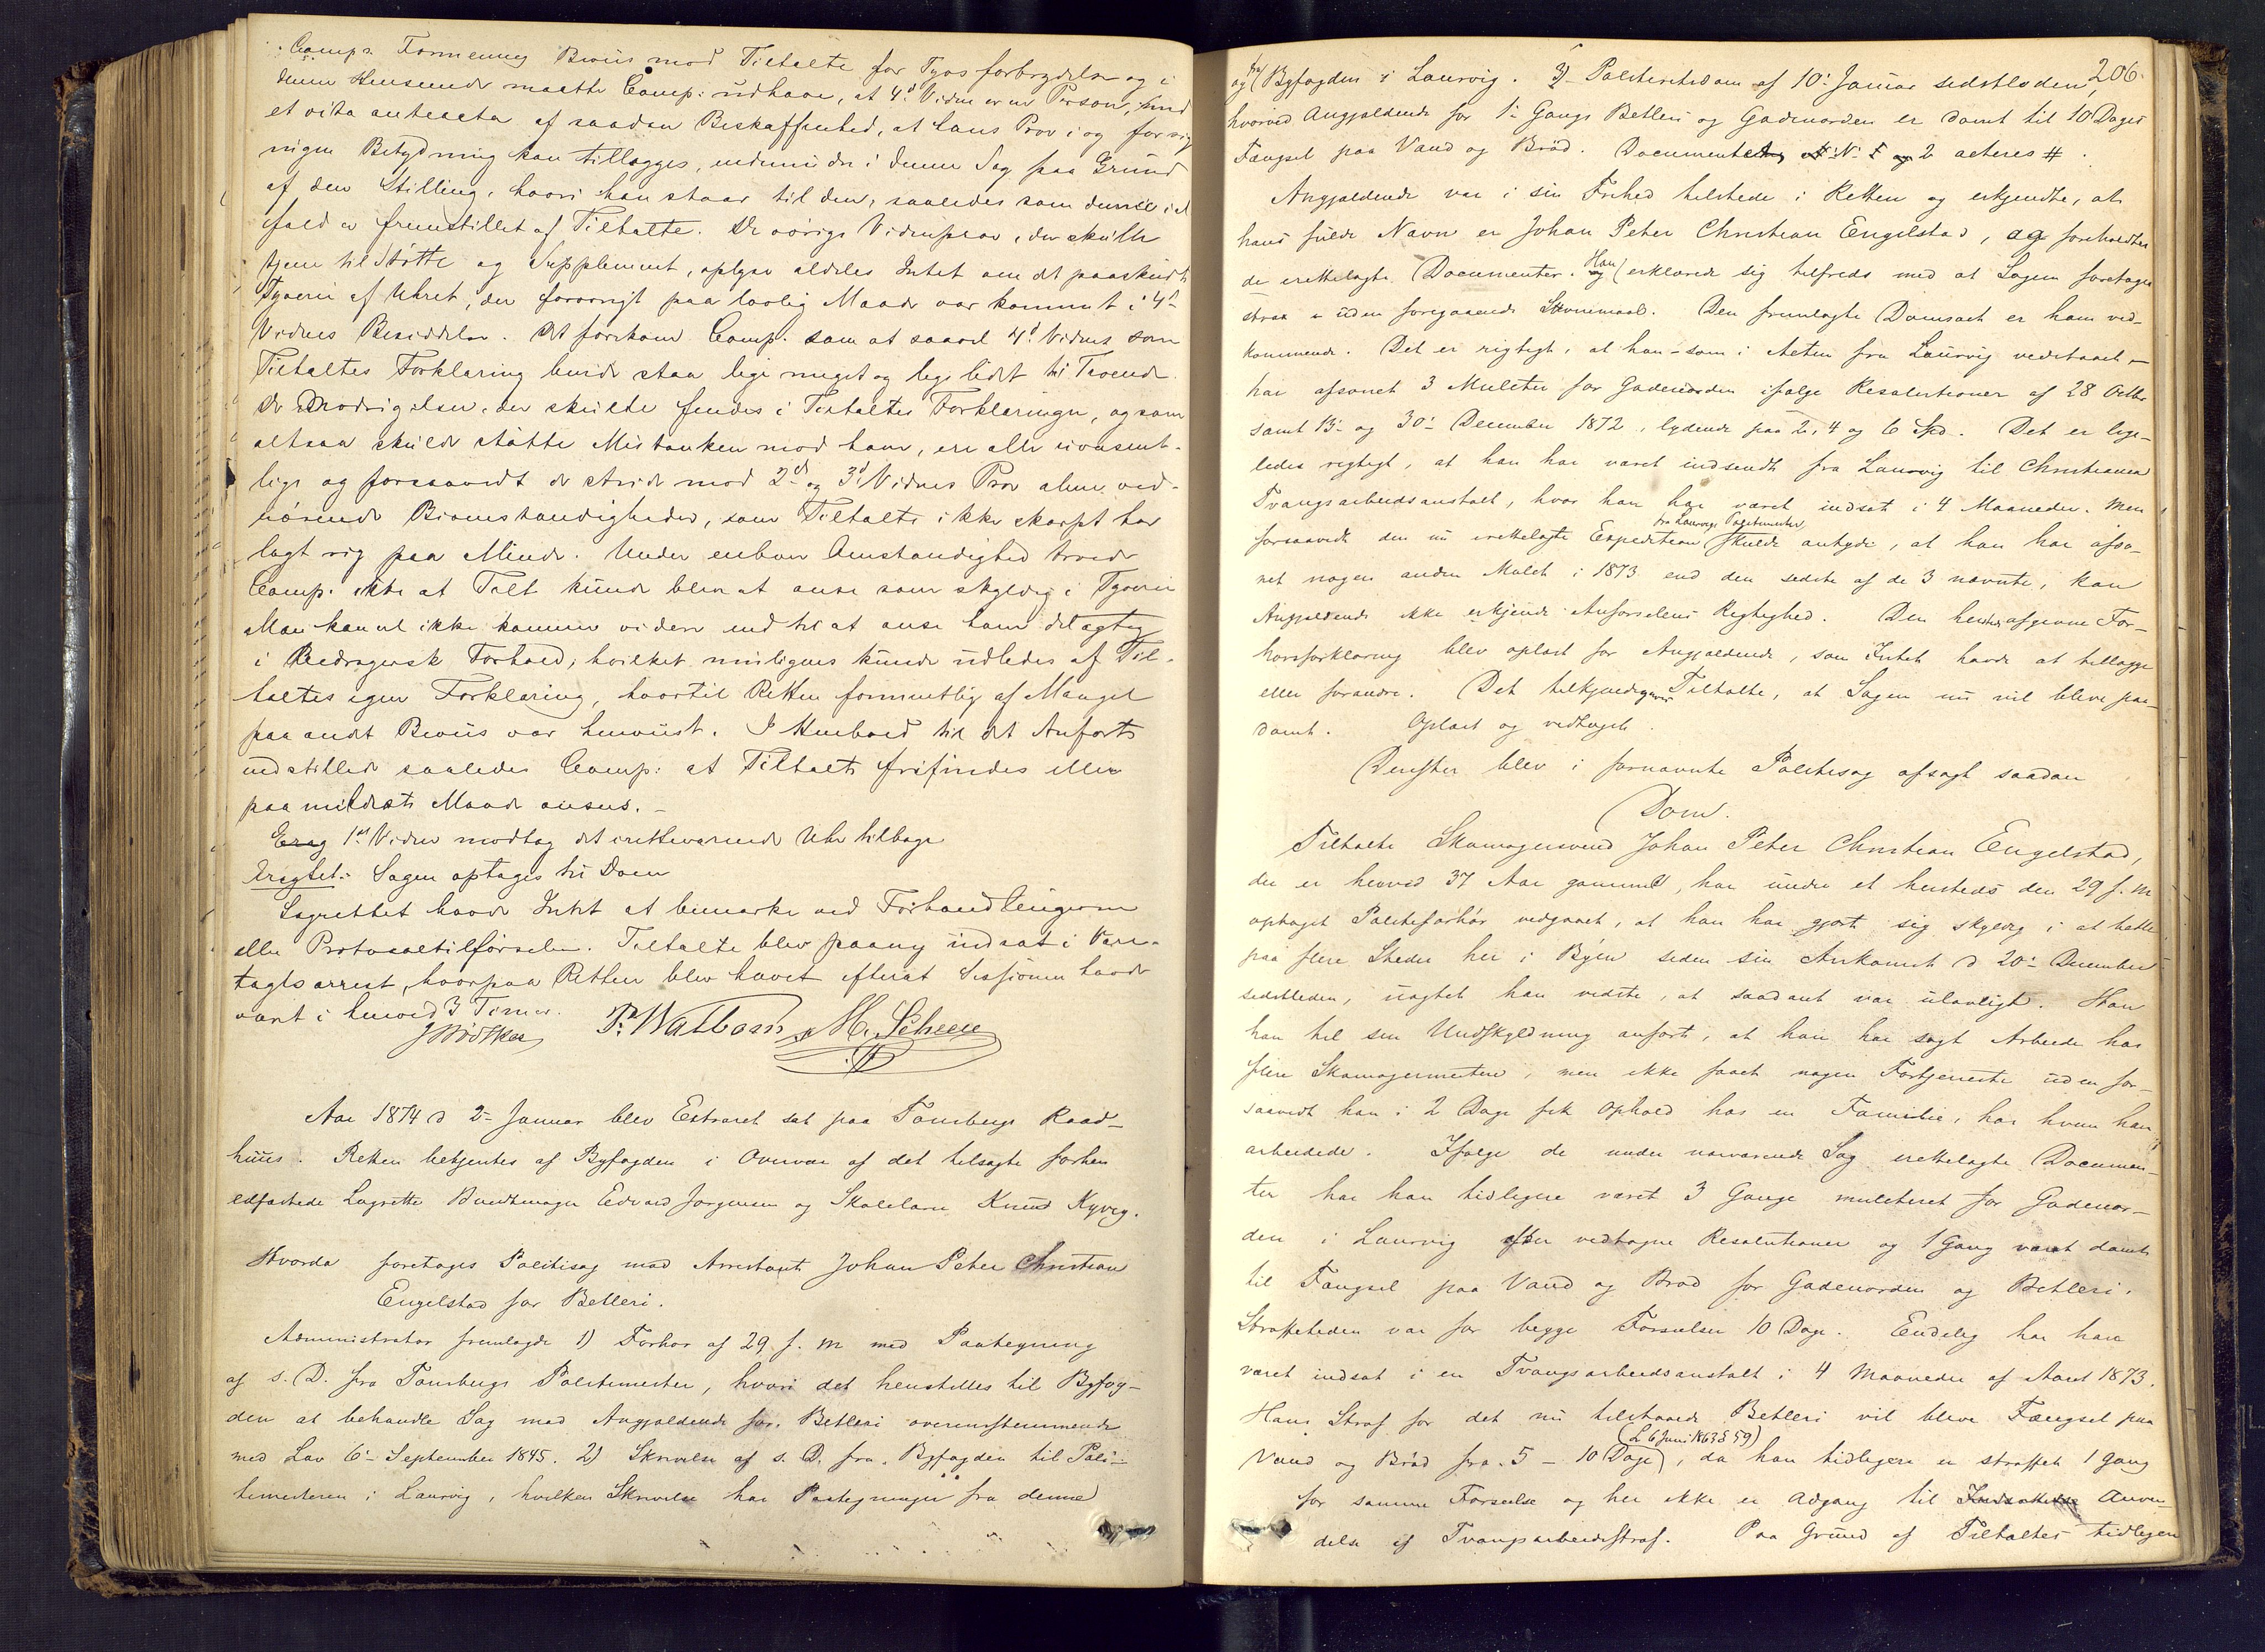 Comps. Formening Beviis mod Tiltalte for Tyvsforbrydelse og i
denne Henseende maatte Comp: udhæve, at 4d Vidne er en Person, med
et vita anteacta af saadan Beskaffenhed, at hans Prov i og for sig
ingen Betydning kan tillægges, endmindre i denne Sag paa Grund
af den Stilling, hvori han staar til den, saaledes som denne i al
Fald er fremstillet af Tiltalte. De øvrige Vidneprov, der skulle
tjene til Støtte og Supplement, oplyse aldeles Intet om det paaskudte
Tyveri af Uhret, der forøvrigt paa lovlig Maade var kommet i 4d
Vidnes Besiddelse. Det forekom Comp. som at saavel 4d Vidnes som
Tiltaltes Forklaring burde staa lige meget og lige lidet til Troende.
De Modsigelser, der skulde findes i Tiltaltes Forklaringer, og som
altsaa skulde støtte Mistanken mod ham, ere alle uvæsent-
lige og forsaavidt de stride mod 2det og 3d Vidnes Prov alene ved-
rørende Biomstændigheder, som Tiltalte ikke skarpt har
lagt sig paa Minde. Under enhver Omstændighed troede
Comp. ikke at Tilt kunde blive at anse som skyldig i Tyveri
Man kan vel ikke komme videre end til at anse ham delagtig
i Bedragersk Forhold, hvilket muligens kunde udledes af Til-
taltes egen Forklaring, hvortil Retten formentlig af Mangel
paa andet Beviis var henviist. I Henhold til det Anførte
indstillede saaledes Comp: at Tiltalte frifindes eller
paa mildeste Maade ansees.-
Erag 1st Vidne modtog det iretteværende Uhr tilbage
Eragtet: Sagen optages til Dom
Lagrettet havde Intet at bemærke ved Forhandlingerne
eller Protocoltilførselen. Tiltalte blev paany indsat i Vare-
tægtsarrest, hvorpaa Retten blev hævet efterat Sessionen havde
varet i henved 3 Timer.
P. Walbom M. Scheen
Aar 1874 d 2- Januar blev Extraret sat paa Tønsbergs Raad-
huus. Retten betjentes af Byfogden i Overvær af det tilsagte forhen
edfæstede Lagrette Bundtmager Edvard Jørgensen og Skolelærer Knud Kyveg.
Hvorda foretoges Politisag mod Arrestant Johan Peter Christian
Engelstad for Betleri.
Administrator fremlagde 1) Forhør af 29 f. M med Paategning
af s. D. fra Tønsbergs Politimester, hvori det henstilles til Byfog-
den at behandle Sag mod Angjældende for Betleri overensstemmende
med Lov 6- September 1845. 2) Skrivelse af s. D. fra Byfogden til Poli-
timesteren i Laurvig, hvilken Skrivelse har Paategninger fra denne
206.
og fra Byfogden i Laurvig. 3) Politiretsdom af 10- Januar sidstleden,
hvorved Angjældende for 1- Gangs Betleri og Gadeuorden er dømt til 10 Dages
Fængsel paa Vand og Brød. Documenterne N: 1 og 2 acteres #.
Angjældende var i sin Frihed tilstede i Retten og erkjendte, at
hans fulde Navn er Johan Peter Christian Engelstad, og foreholdtes
de irettelagte Documenter. Han og erklærede sig tilfreds med at Sagen foretages
strax uden foregaaende Stevnemaal. Den fremlagte Domsact er ham ved-
kommende. Det er rigtigt, at han - som i Acten fra Laurvig vedstaaet -
har afsonet 3 Mulcter for Gadeuorden ifølge Resolutioner af 28 Octbr
samt 13- og 30- December 1872, lydende paa 2, 4 og 6 Spd. Det er lige-
ledes rigtigt, at han har været indsendt fra Laurvig til Christiania
Tvangsarbeidsanstalt, hvor han har været indsat i 4 Maaneder. Men
forsaavidt den nu irettelagte Expedition fra Laurvigs Politimester skulde antyde, at han har afso-
net nogen anden Mulct i 1873 end den sidste af de 3 nævnte, kan
Angjældende ikke erkjende Anførselens Rigtighed. Den herstedsafgivne For-
hørsforklaring blev oplæst for Angjældende, som Intet havde at tillægge
eller forandre. Det tilkjendegives Tiltalte, at Sagen nu vil blive paa-
dømt. Oplæst og vedtaget.
Derefter blev i fornævnte Politisag afsagt saadan
Dom.
Tiltalte Skomagersvend Johan Peter Christian Engelstad,
der er henved 37 Aar gammel, har under et hersteds den 29 f. M
optaget Politiforhør vedgaaet, at han har gjort sig skyldig i at betle
paa flere Steder her i Byen siden sin Ankomst d 20- December
sidstleden, uagtet han vidste, at saadant var ulovligt. Han
har til sin Undskyldning anført, at han har søgt Arbeide hos
flere Skomagermestere, men ikke faaet nogen Fortjeneste uden for-
saavidt han i 2 Dage fik Ophold hos en Familie, hos hvem han
arbeidede. Ifølge de under nærværende Sag irettelagte Documen-
ter har han tidligere været 3 Gange mulcteret for Gadeuor-
den i Laurvig efter vedtagne Resolutioner og 1 Gang været dømt
til Fængsel paa Vand og Brød for Gadeuorden og Betleri.
Straffetiden var for begge Forseelser 10 Dage. Endelig har han
været indsat i en Tvangsarbeidsanstalt i 4 Maaneder af Aaret 1873.
Hans Straf for det nu tilstaaede Betleri vil blive Fængsel paa
Vand og Brød fra 5 - 10 Dage (L 6 Juni 1863 § 59), da han tidligere er straffet 1 Gang
for samme Forseelse og her ikke er Adgang til Indsættelse Anven-
delse af Tvangsarbeidsstraf. Paa Grund af Tiltaltes tidligere